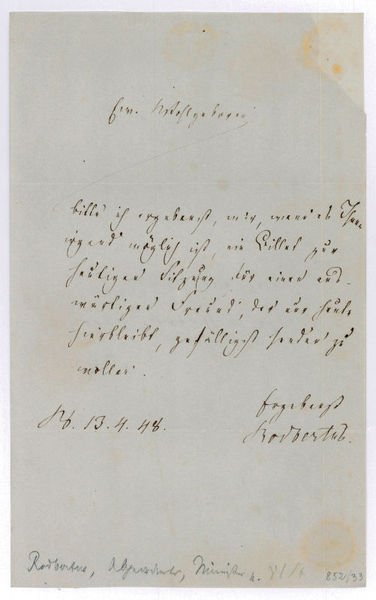 Ew. Wohlgeboren
bitte ich ergebenst, mir, wenn es Ihnen
irgend möglich ist, ein Billet zur
heutigen Sitzung für einen aus-
wärtigen Freund, der nur heute
hierbleibt, gefälligst senden zu
wollen.
Ergebenst
Rodbertus.
13. 4. 48.
Rodbertus, Minister
852/33